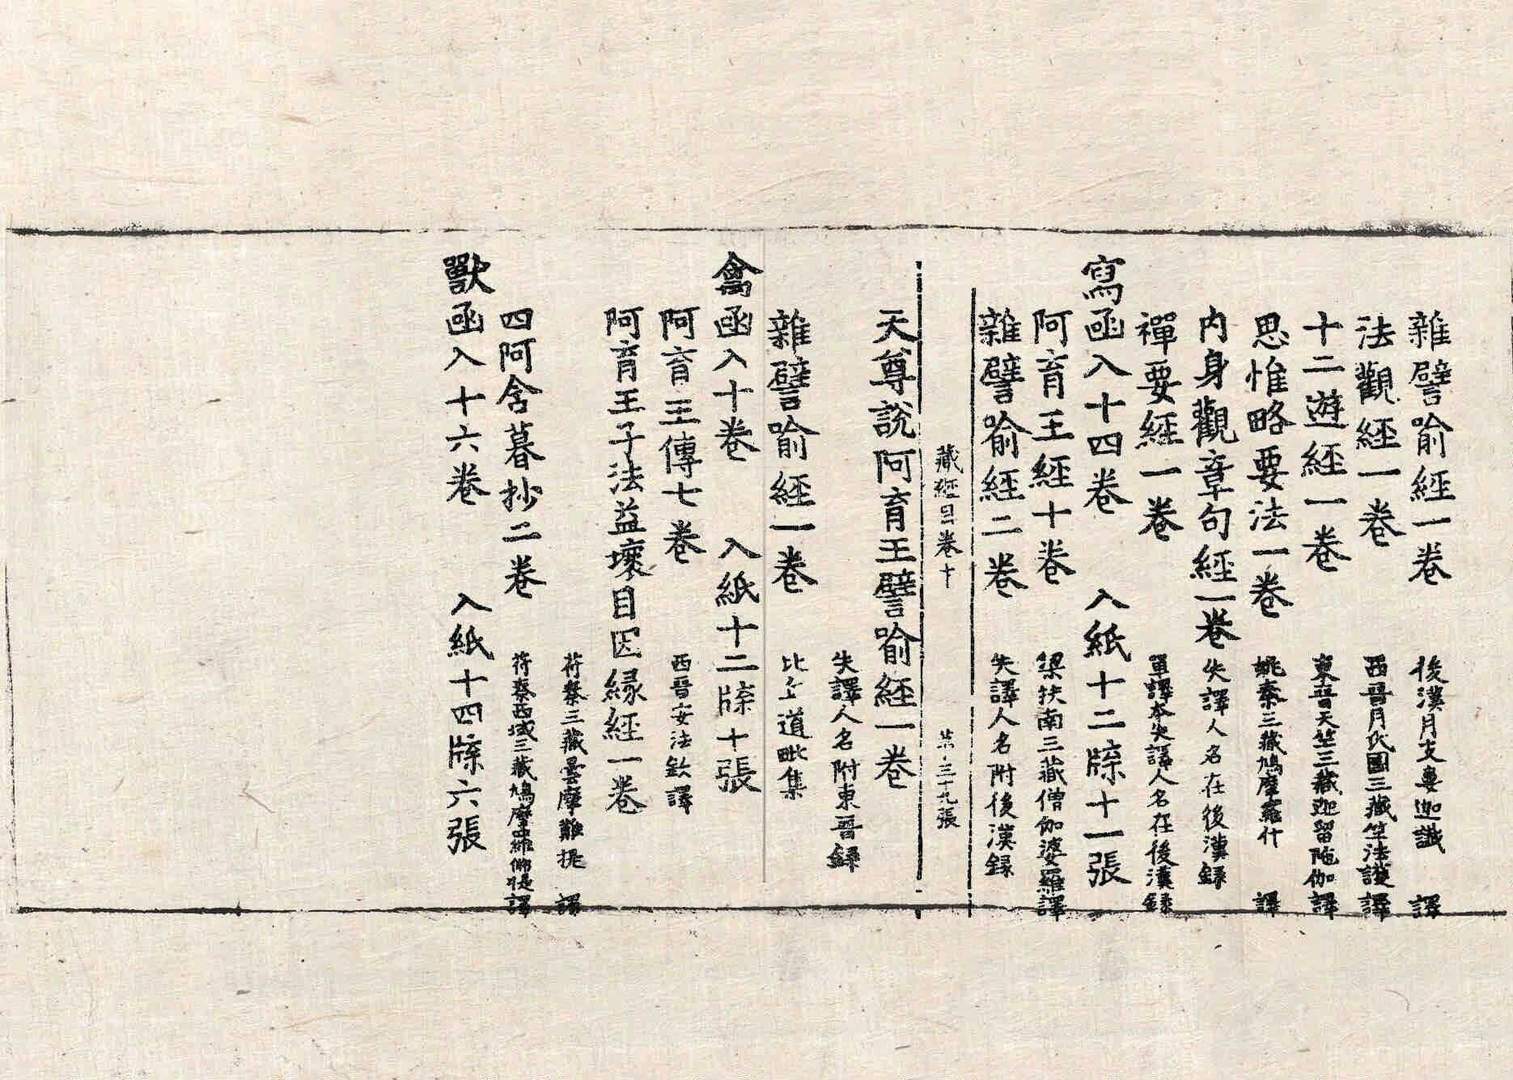 雜譬喻經一卷 後漢月支婁迦讖 譯
法觀經一卷 西晉月氏國三藏竺法護譯
十二遊經一卷 東晉天竺三藏迦留陁伽譯
思惟略要法一卷 姚秦三藏鳩摩羅什 譯
内身觀章句經一卷 失譯人名在後漢錄
禪要經一卷 單譯本失譯人名在後漢錄
寫函入十四卷 入紙十二牒十一張
阿育王經十卷 梁扶南三藏僧伽婆羅譯
雜譬喻經二卷 失譯人名附後漢録
藏經目卷十 第三十九張
天尊說阿育王譬喻經一卷
失譯人名附東晉録
雜譬喻經一卷 比丘道毗集
禽函入十卷 入紙十二牒十張
阿育王傳七卷 西晉安法欽譯
阿育王子法益壞目因緣經一卷
苻秦三藏曇摩難提 譯
四阿含暮抄二卷 苻秦西域三藏鳩摩羅佛提譯
獸函入十六卷 入紙十四牒六張